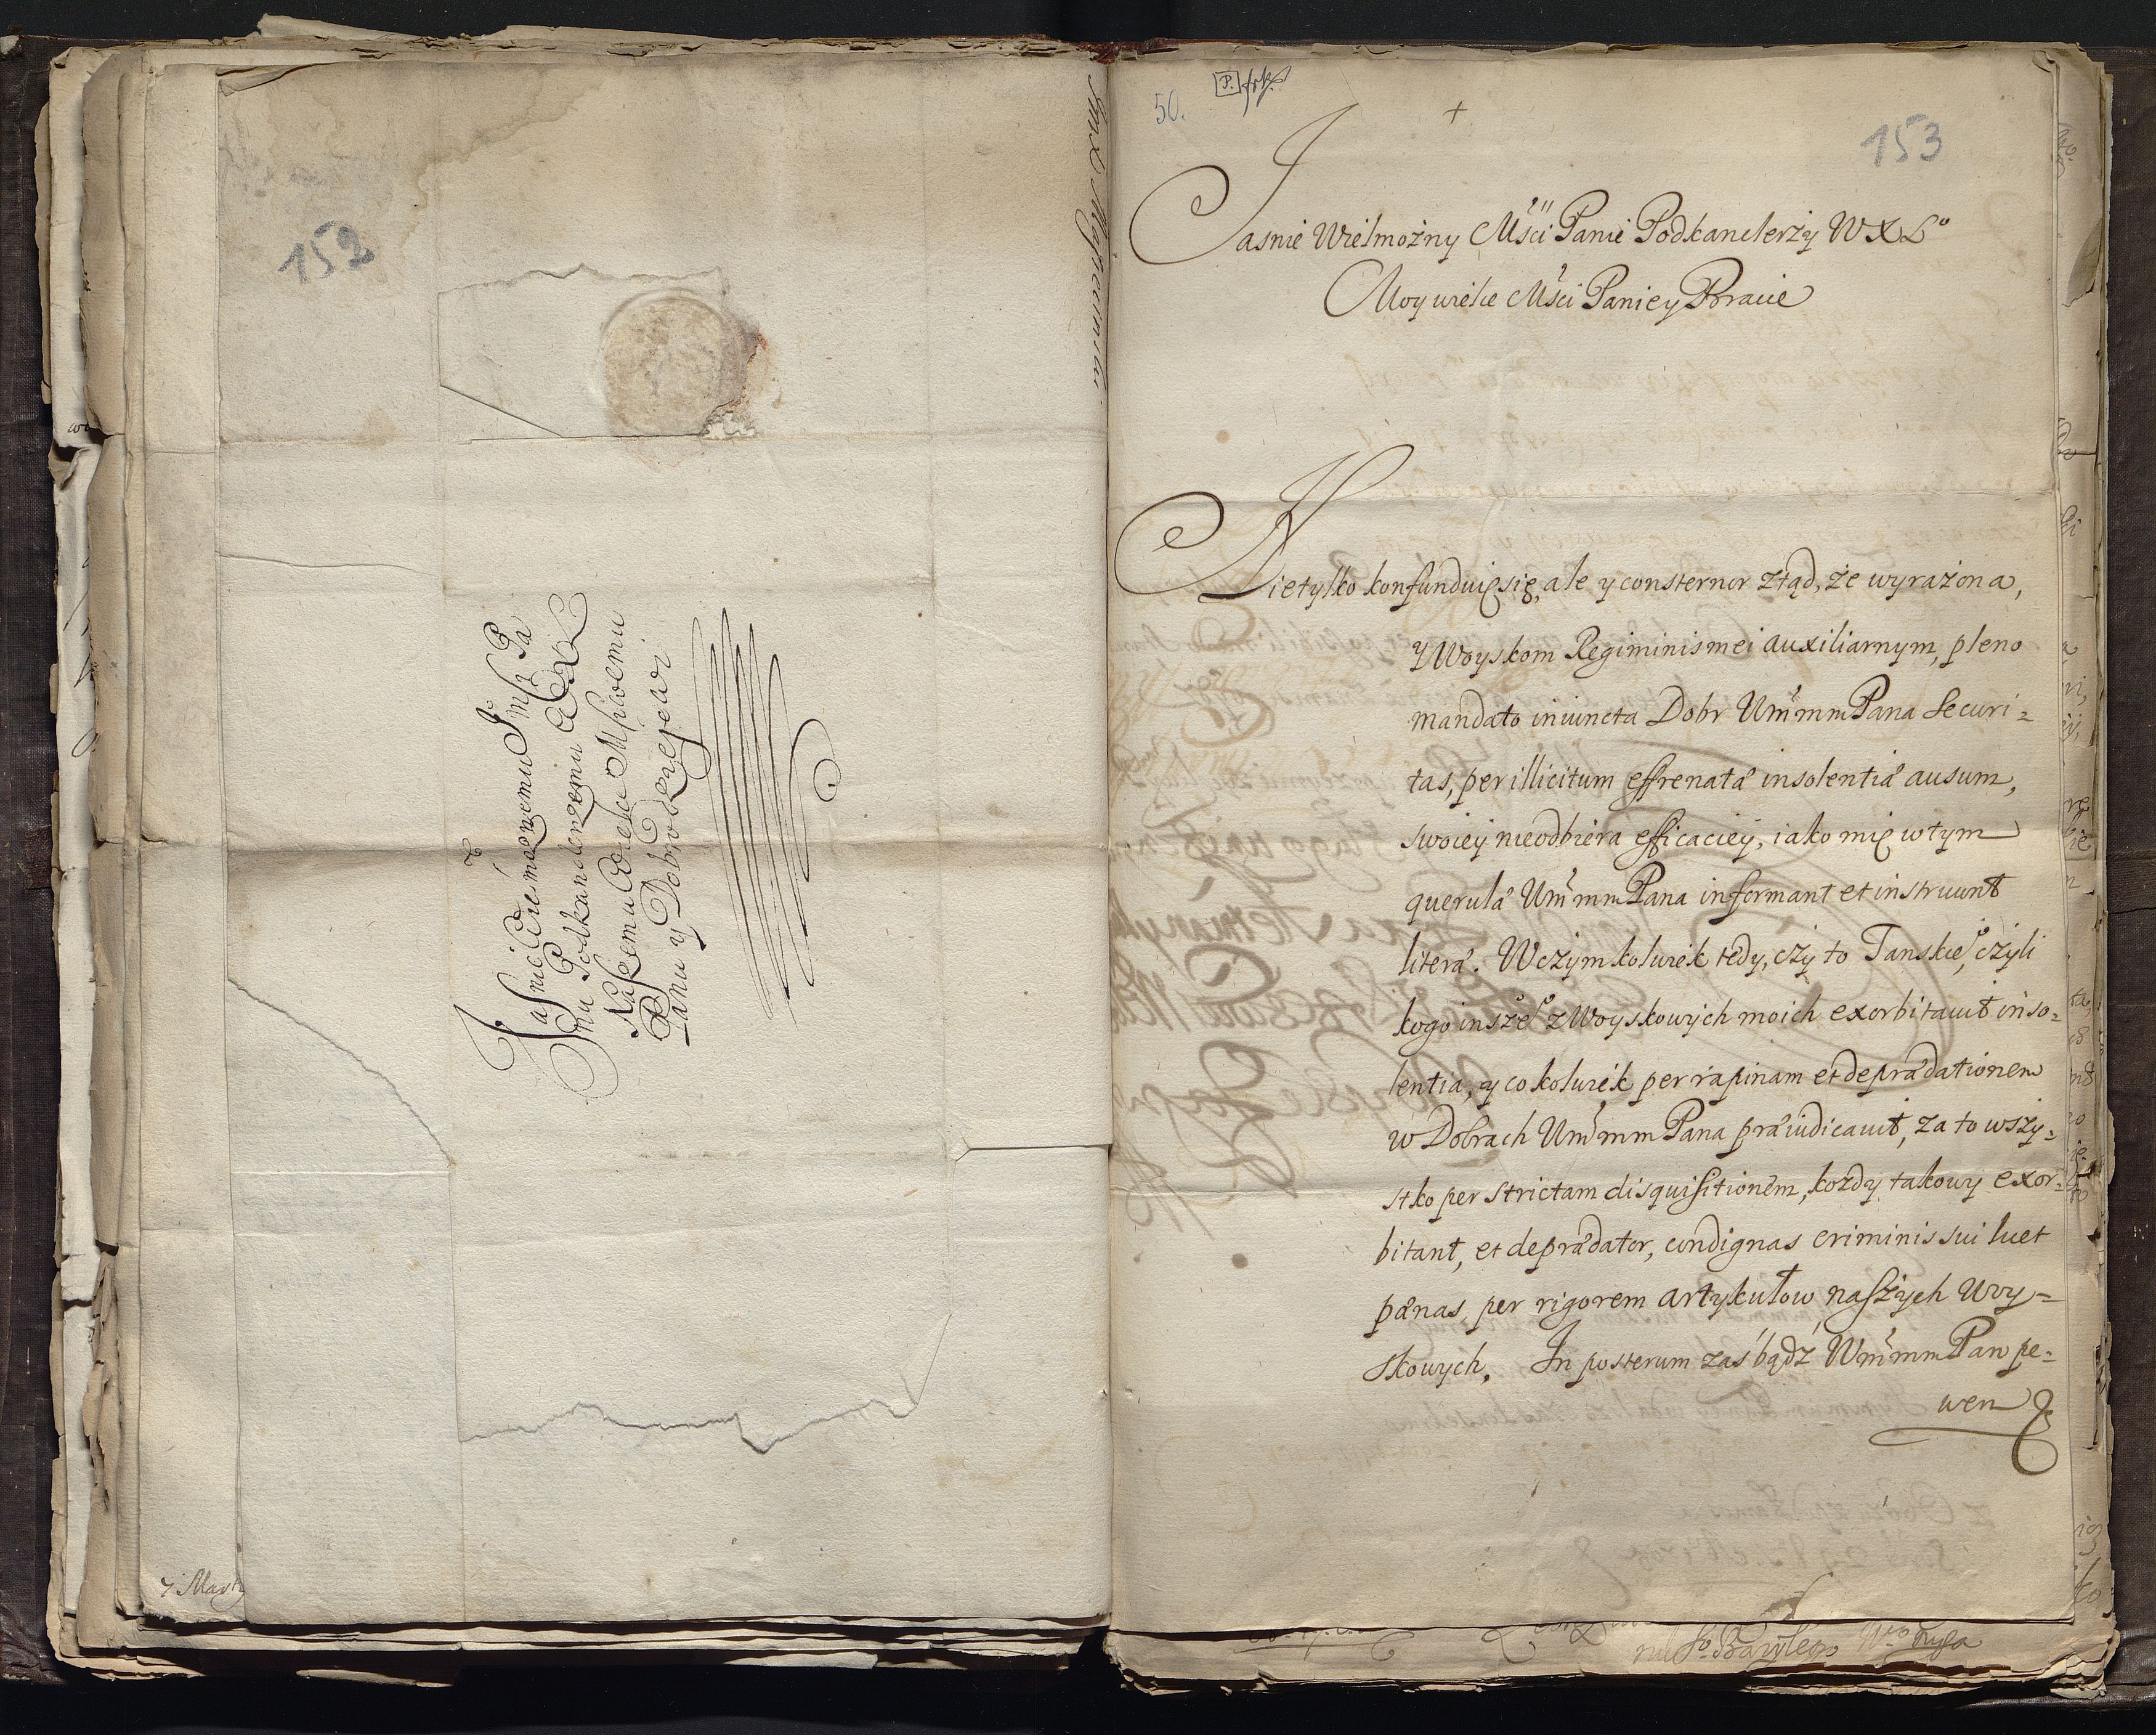 152
Jasnie Wielmoznemu Jº Mści Pa
nu Podkanclerzemu WXL
Naszemu Wielce Mściwemu
Panu y Dobrodzieiewi
7 Marty
50.
153
Jasnie Wielmożny Mści Panie Podkanclerży WXLº
Moy wielce Mści Panie y Bracie
Nietylko konfunduię się, ale y consternor ztąd, że wyrażona,
y Woyskom Regiminis mei auxiliarnym, pleno
mandato iniuncta Dobr Wm mm Pana Securi=
tas, per illicitum effrenatâ insolentiâ ausum,
swoiey nieodbiera efficaciey, iako mię w tym
querulâ Wm mm Pana informant et instruunt
literæ. W czym kolwiek tedy, czy to Tanskieº, czyli
kogo inszeº z Woyskowych moich exorbitavit inso=
lentia, y co kolwiek per rapinam et deprædationem
w Dobrach Wm mm Pana præiudicavit, za to wszy=
stko per strictam disquisitionem, kożdy takowy exor=
bitant, et deprædator, condignas criminis sui luet
pœnas, per rigorem artykułow naszych Woy=
skowych. In posterum zaś bądź Wm mm Pan pe=
wen